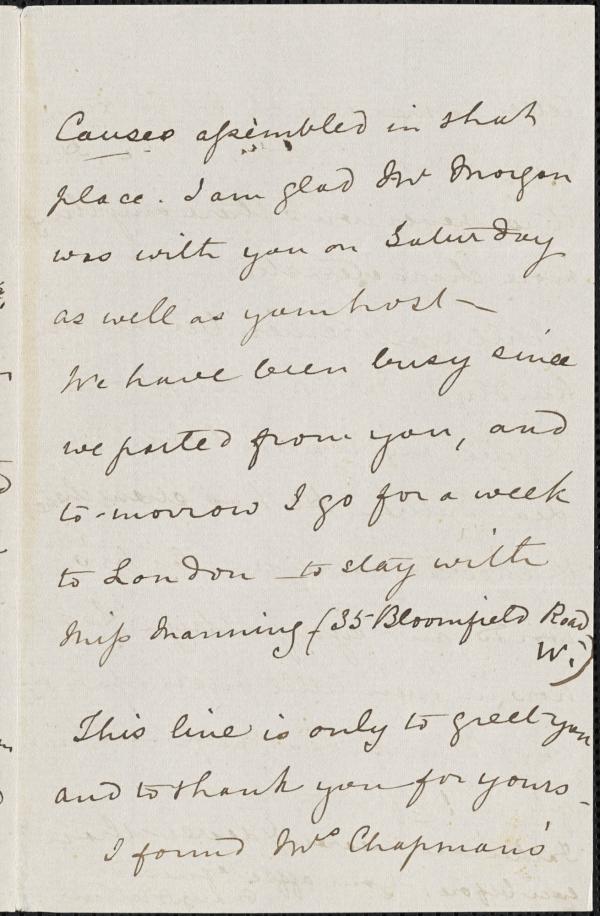 Causes assembled in that
place. I am glad Mr Morgan
was with you on Saturday
as well as your host—
We have been busy since
we parted from you, and
to-morrow I go for a week
to London — to stay with
Miss Manning (35 Bloomfield Road
W.)
This line is only to greet you
and to thank you for yours—
I found Mrs Chapman's